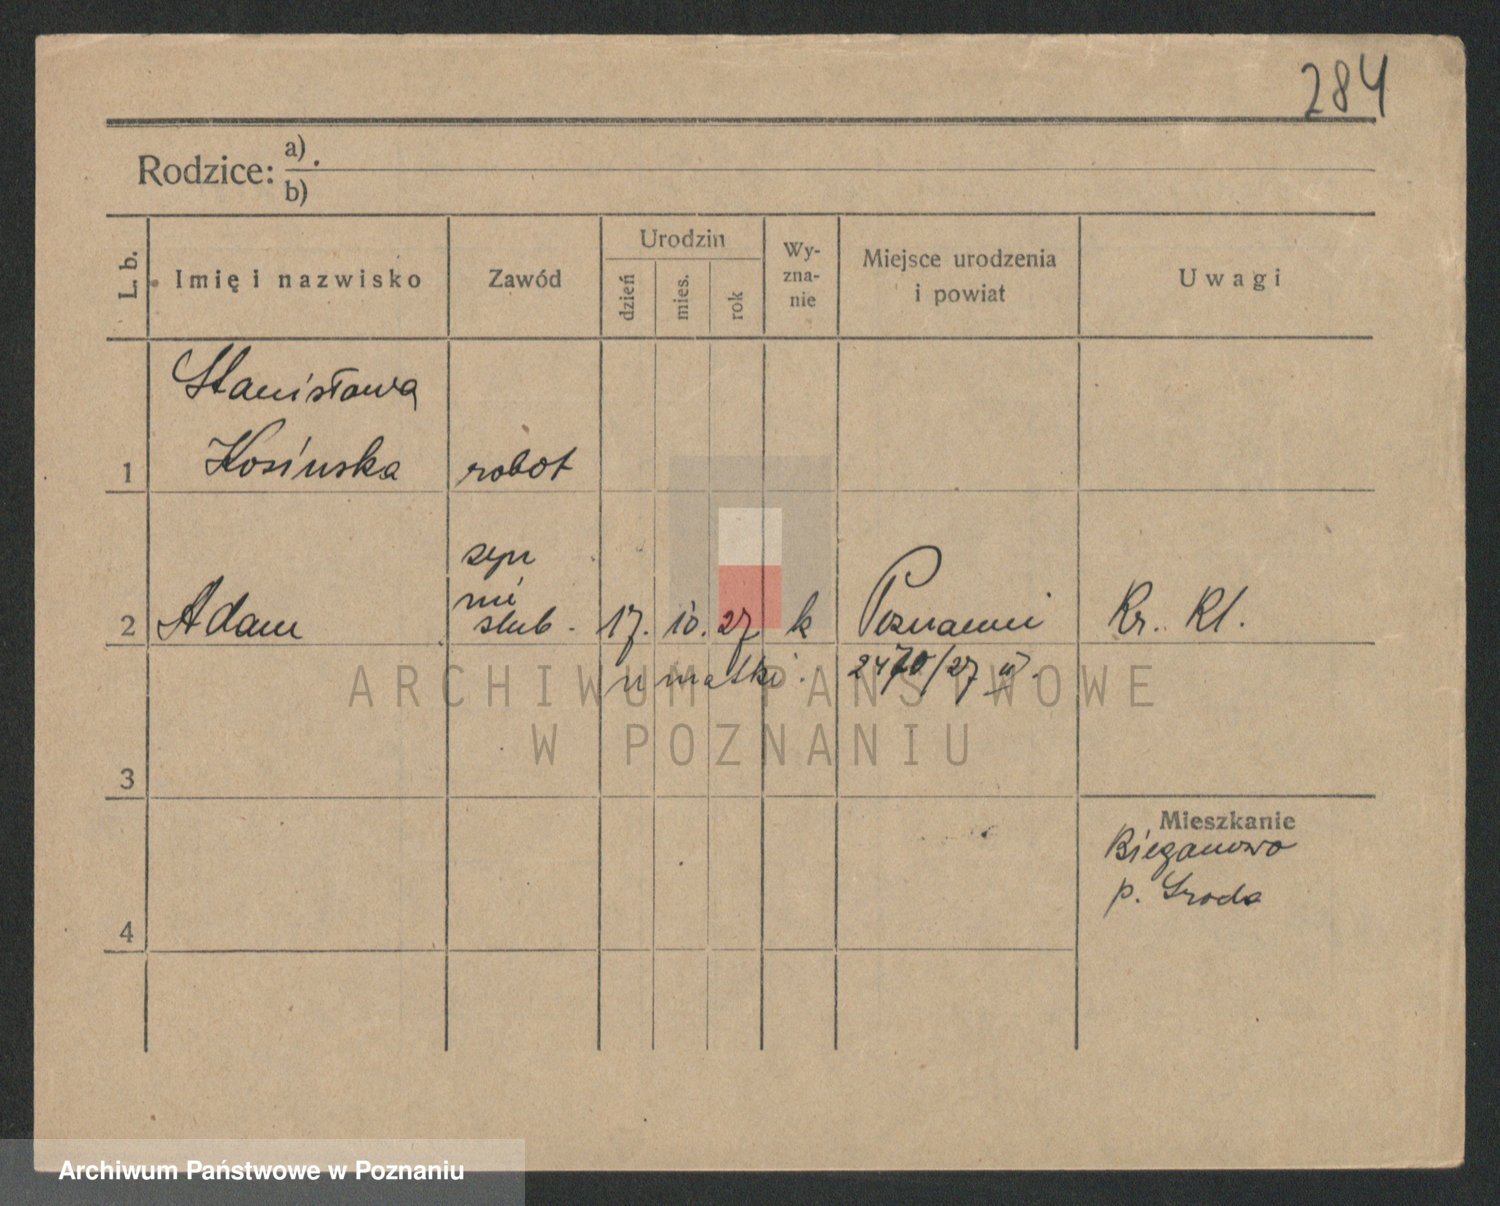 284
Rodzice: a) .
b)
L. b.
Imię i nazwisko
Zawód
Urodzin
dzień
mies.
rok
Wy-
zna-
nie
Miejsce urodzenia
i powiat
Uwagi
Stanisława
1 Kosińska robot
syn
nie
2 Adam ślub. 17. 10. 27 k Poznaniu Kr. Kl.
u matki. 2470/27 II.
3
Mieszkanie
Bieganowo
p. Środa
4
ARCHIWUM PAŃSTWOWE
W POZNANIU
Archiwum Państwowe w Poznaniu